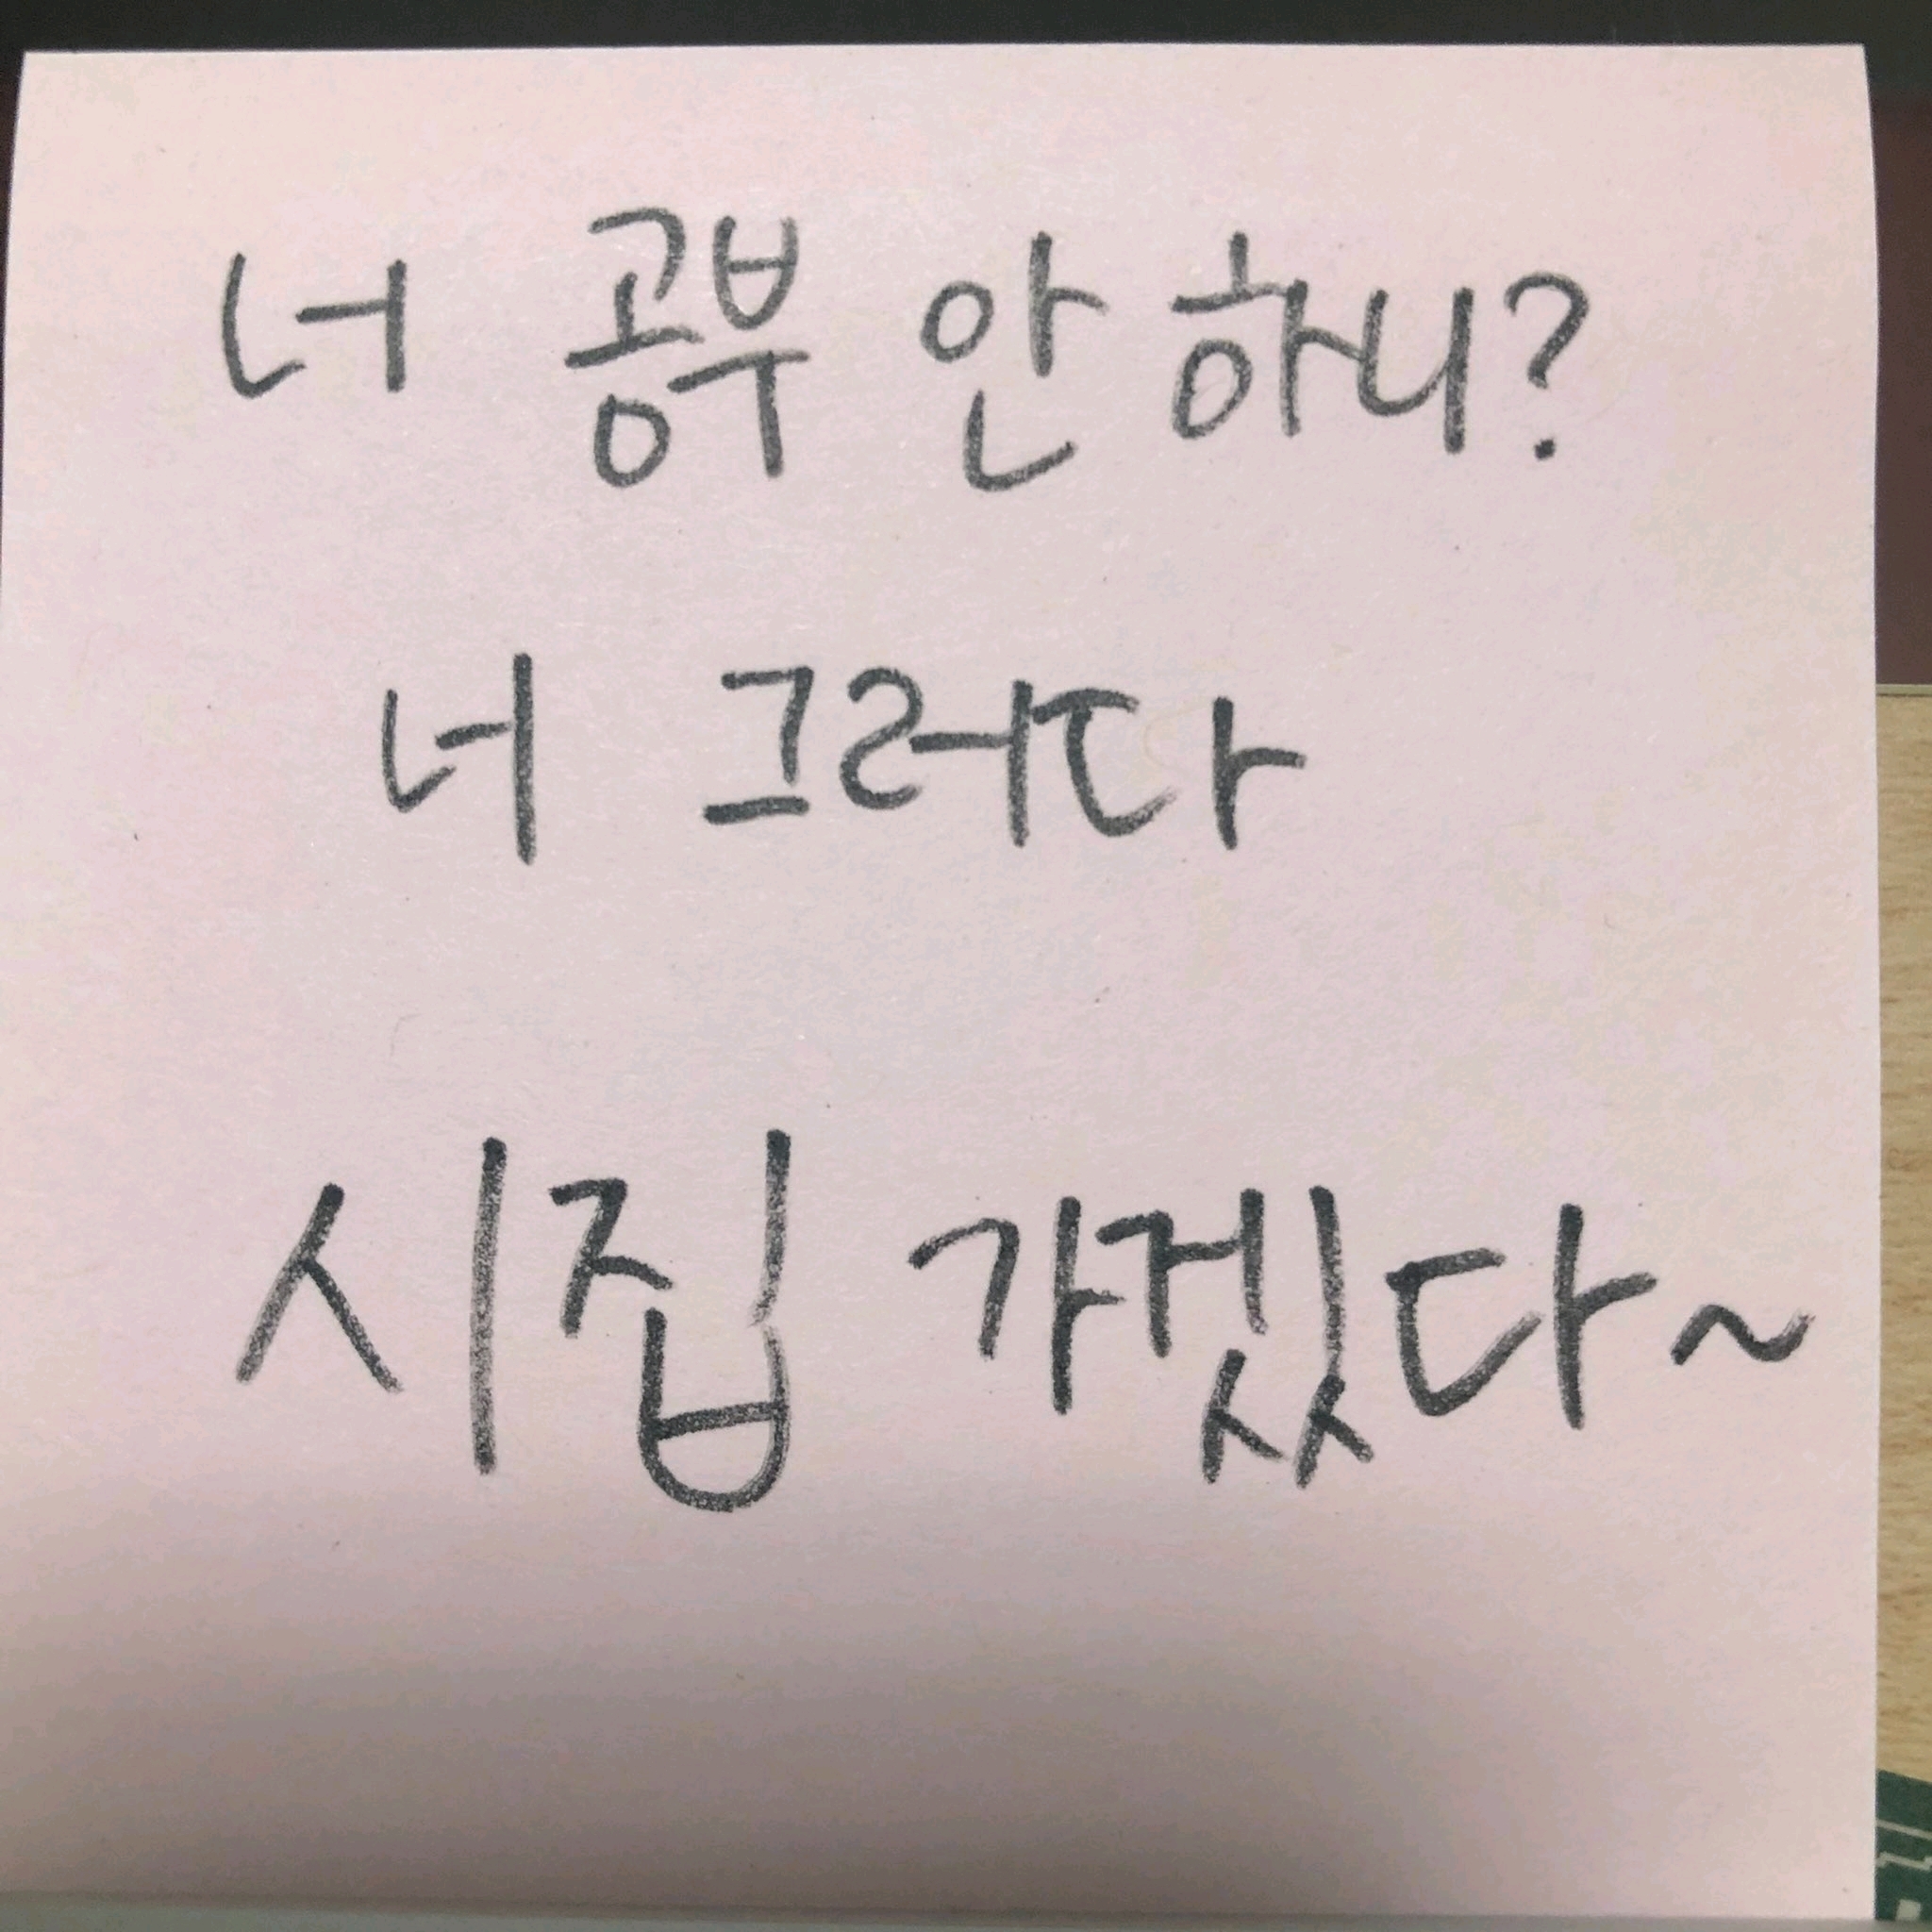 너 공부 안 하니?
너 그러다
시집 가겠다~